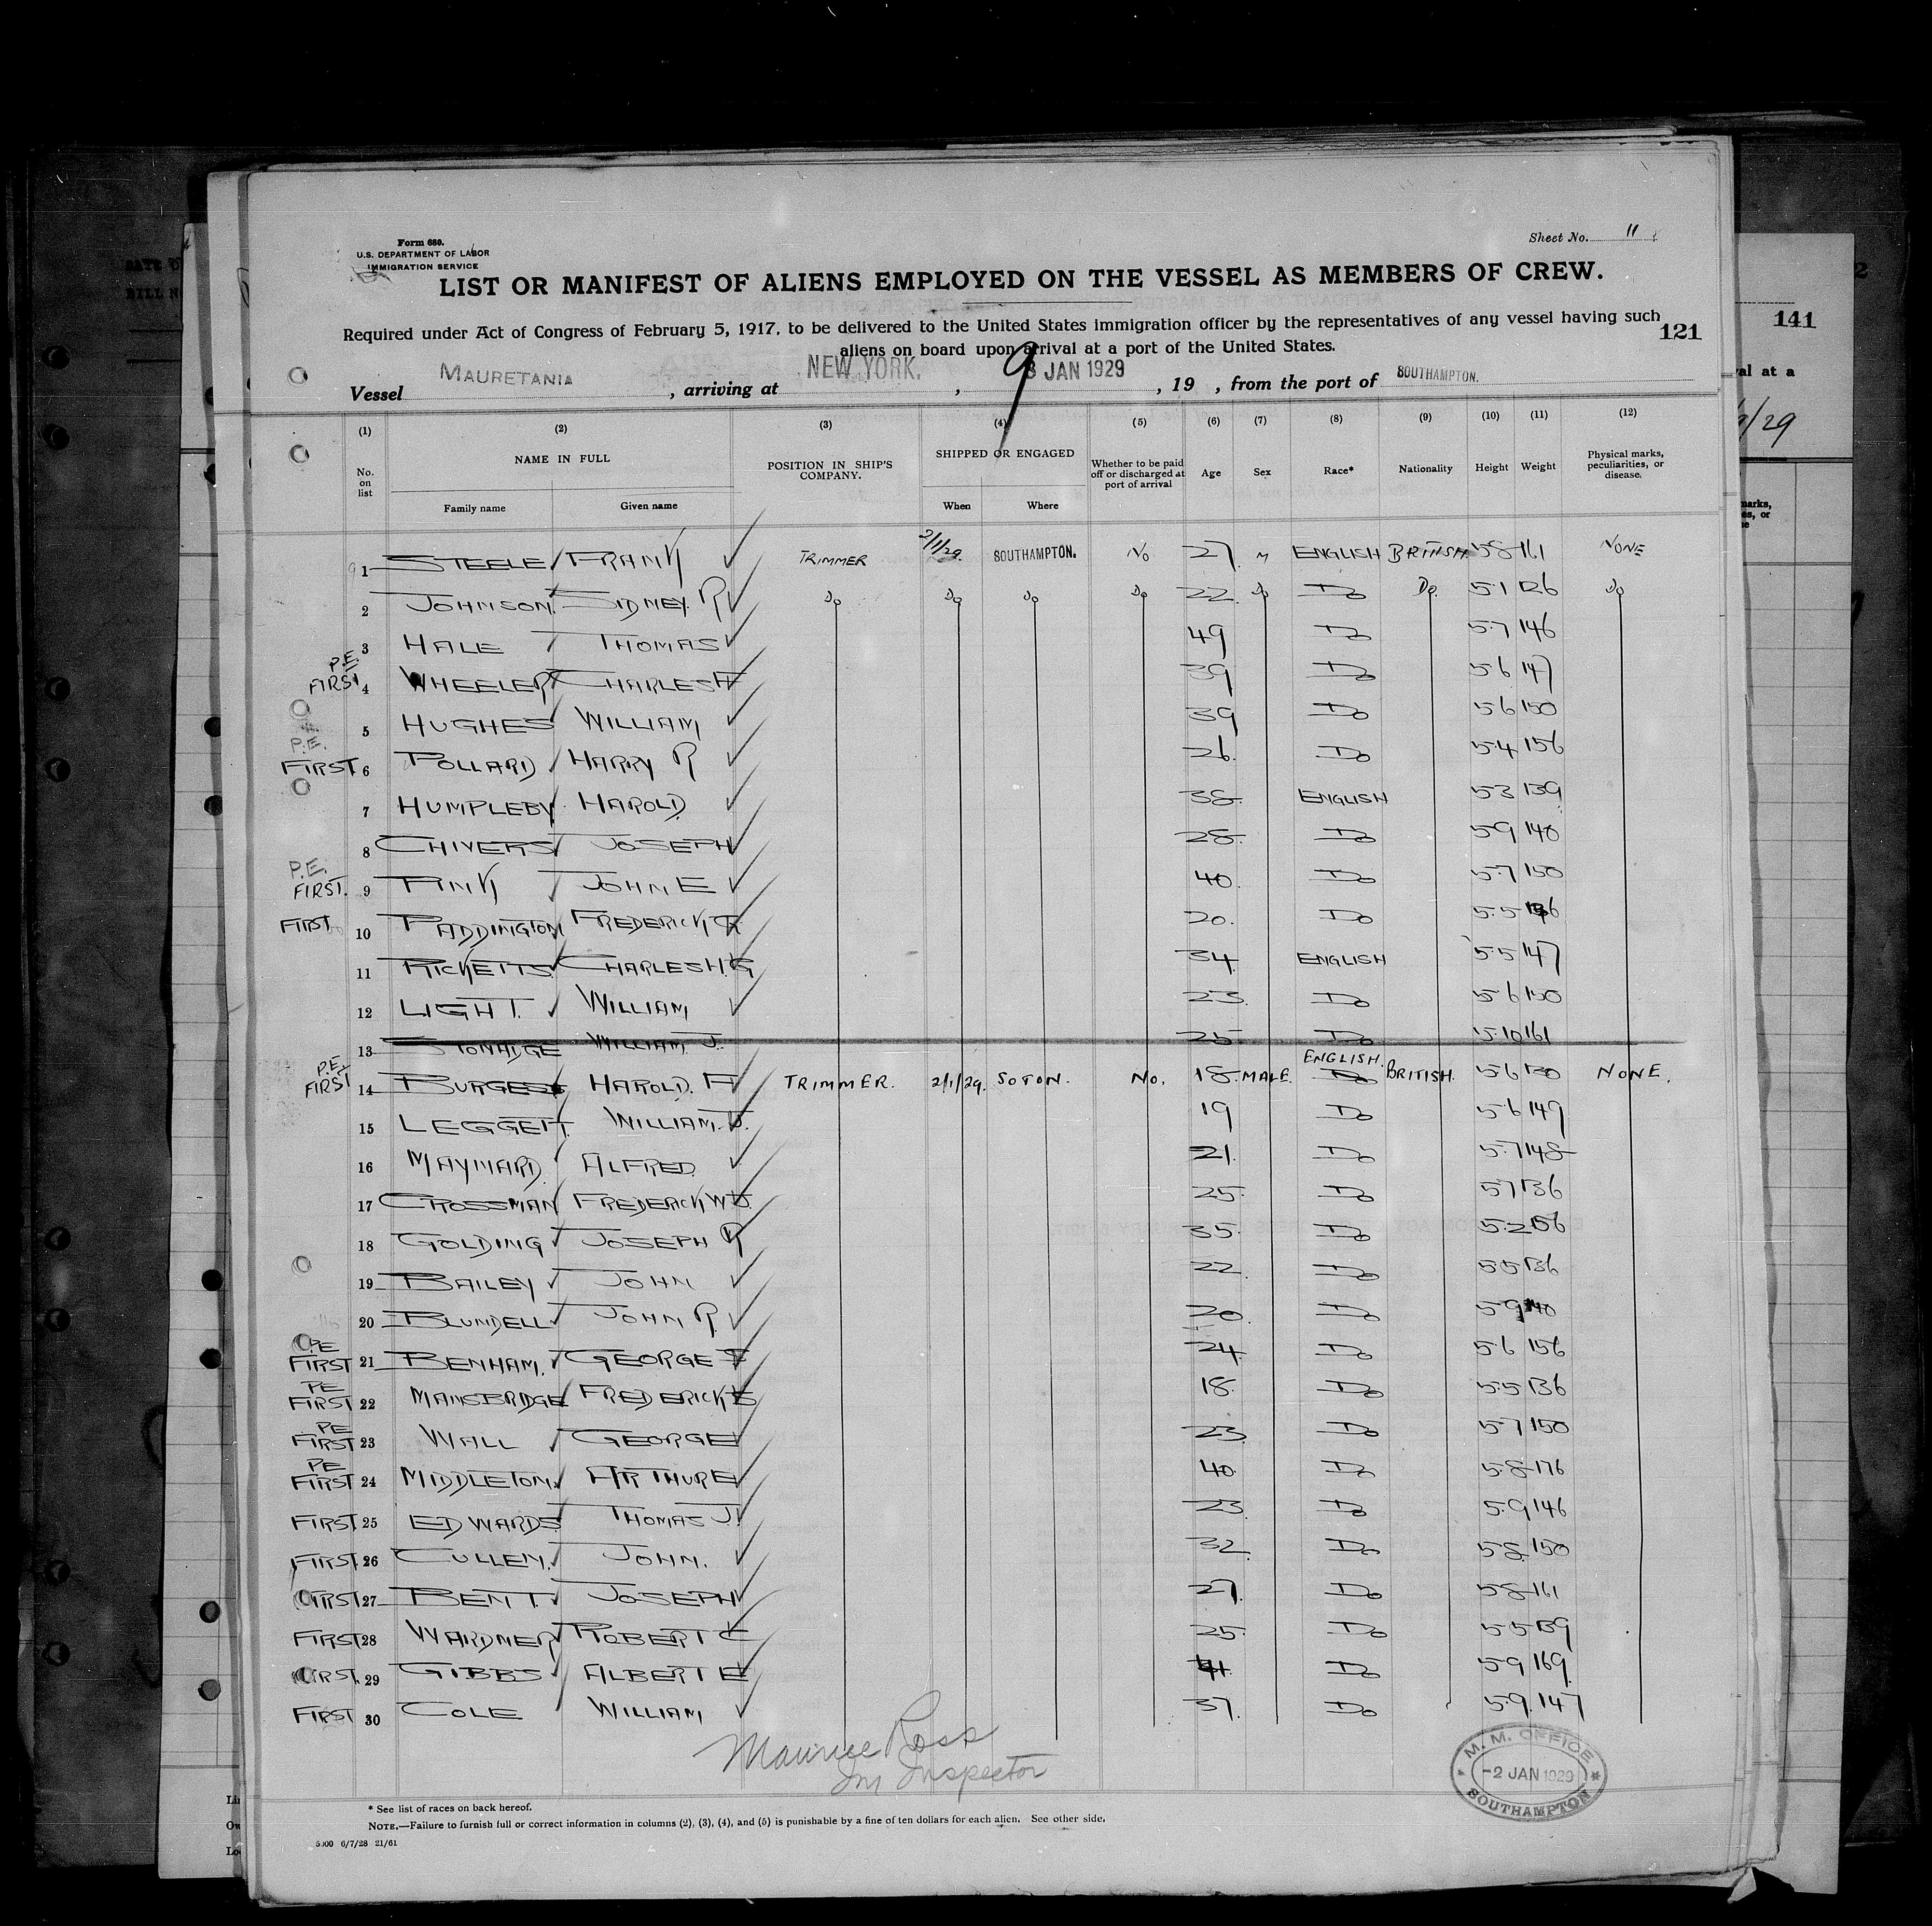 Form 680.
U.S. DEPARTMENT OF LABOR
IMMIGRATION SERVICE
Sheet No. 11
LIST OR MANIFEST OF ALIENS EMPLOYED ON THE VESSEL AS MEMBERS OF CREW.
Required under Act of Congress of February 5, 1917, to be delivered to the United States immigration officer by the representatives of any vessel having such
aliens on board upon arrival at a port of the United States.
121
141
val at a
Vessel MAURETANIA, arriving at NEW YORK., 9 JAN 1929, 19 , from the port of SOUTHAMPTON.
/29
(1) (2) (3) (4) (5) (6) (7) (8) (9) (10) (11) (12)
No. on list NAME IN FULL POSITION IN SHIP'S COMPANY. SHIPPED OR ENGAGED Whether to be paid off or discharged at port of arrival Age Sex Race* Nationality Height Weight Physical marks, peculiarities, or disease.
Family name Given name When Where
1 STEELE FRANK TRIMMER 2/1/29. SOUTHAMPTON. NO 27 M ENGLISH BRITISH 5·8 161 NONE
2 JOHNSON. SIDNEY. R Do Do Do Do 22. Do Do Do. 5·1 126 Do
3 HALE THOMAS 49 Do 5·7 146
P.E. FIRST 4 WHEELER CHARLES H 39 Do 5·6 147
5 HUGHES WILLIAM 39 Do 5·6 150
P.E. FIRST 6 POLLARD HARRY R 26. Do 5·4 156
7 HUMPLEBY HAROLD. 38. ENGLISH 5·3 139
8 CHIVERS JOSEPH 28. Do 5·9 140
P.E. FIRST. 9 PINK JOHN E 40. Do 5·7 150
FIRST 10 PADDINGTON FREDERICK G 20. Do 5·5 136
11 RICKETTS CHARLES H.G 34. ENGLISH 5·5 147
12 LIGHT. WILLIAM 23. Do 5·6 150
13 STONAIGE WILLIAM J. 25. Do 5·10 161
P.E. FIRST 14 BURGESS HAROLD. A TRIMMER. 2/1/29. SOTON. No. 18. MALE. ENGLISH. BRITISH. 5·6 130 NONE.
15 LEGGETT WILLIAM. J. 19 Do 5·6 149
16 MAYNARD. ALFRED. 21. Do 5·7 148
17 CROSSMAN FREDERICK W J. 25. Do 5·7 136
18 GOLDING JOSEPH R 35. Do 5·2 156
19 BAILEY JOHN 22. Do 5·5 136
20 BLUNDELL JOHN R. 20. Do 5·9 140
PE FIRST 21 BENHAM. GEORGE F 24. Do 5·6 156
PE FIRST 22 MANSBRIDGE FREDERICK E 18. Do 5·5 136
PE FIRST 23 WALL GEORGE 23. Do 5·7 150
PE FIRST 24 MIDDLETON. ARTHUR E 40. Do 5·8 176
FIRST 25 EDWARDS THOMAS J. 23. Do 5·9 146
FIRST. 26 CULLEN. JOHN. 32. Do 5·8 150
FIRST 27 BENT. JOSEPH 27. Do 5·8 161
FIRST 28 WARDNER ROBERT C 25. Do 5·5 139
FIRST. 29 GIBBS ALBERT E 41. Do 5·9 169.
FIRST 30 COLE WILLIAM 37. Do 5·9 147
Maurice Ross
Im Inspector
M. M. OFFICE
-2 JAN 1929
SOUTHAMPTON
* See list of races on back hereof.
NOTE.—Failure to furnish full or correct information in columns (2), (3), (4), and (5) is punishable by a fine of ten dollars for each alien. See other side.
5000 6/7/28 21/61